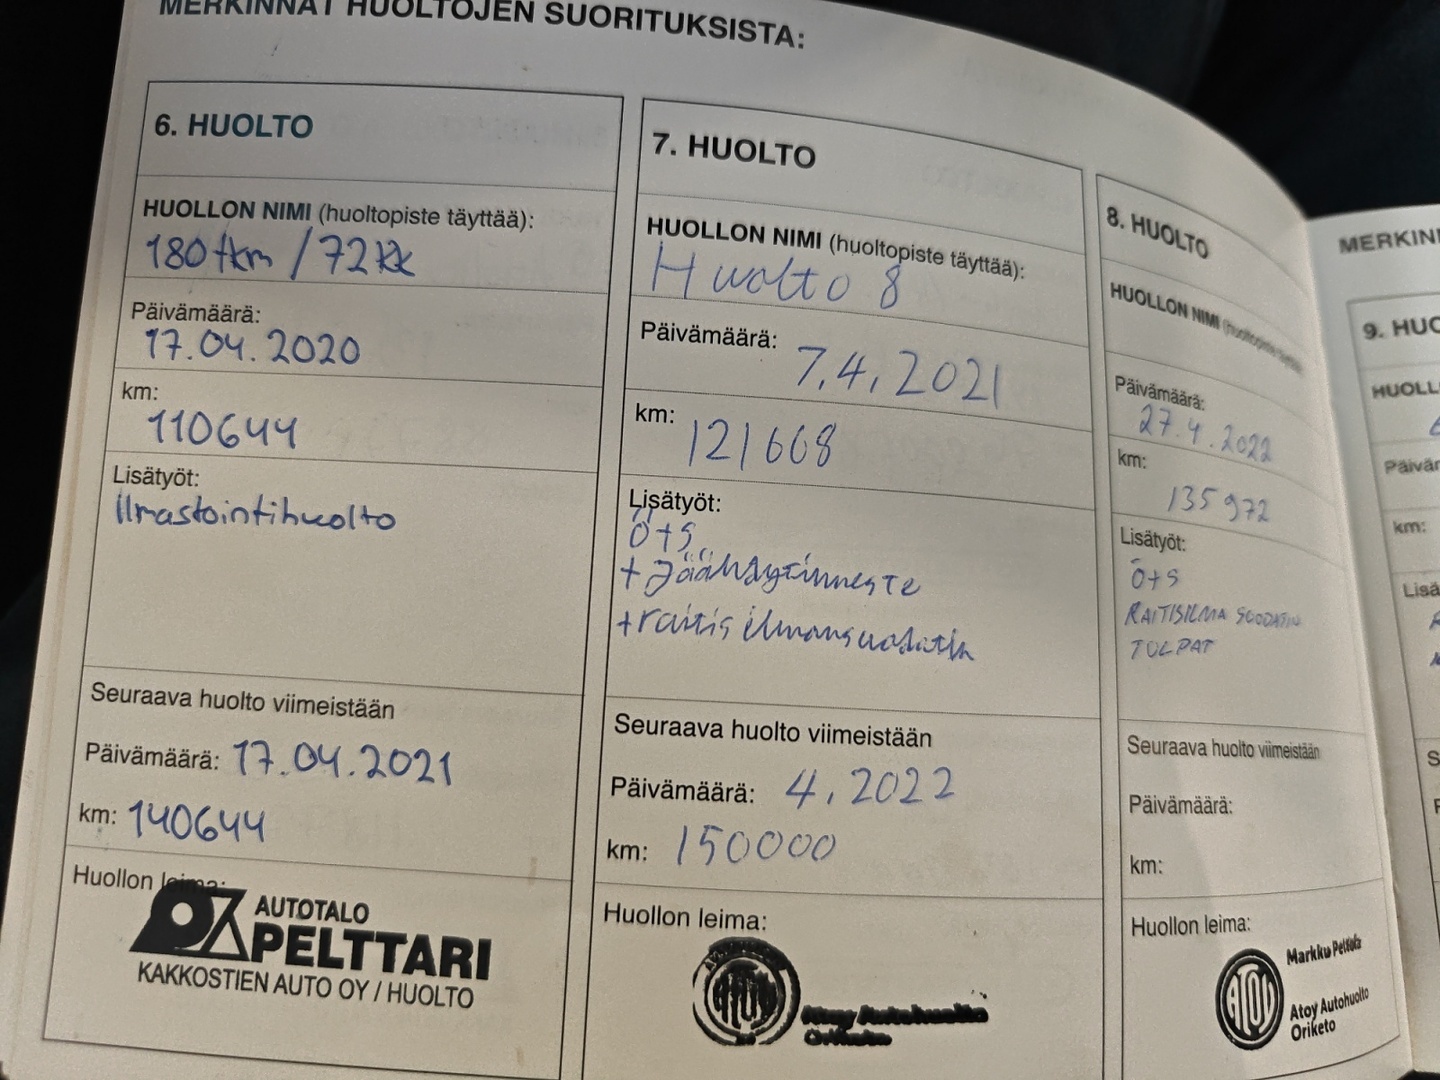 MERKINNÄT HUOLTOJEN SUORITUKSISTA:
6. HUOLTO
HUOLLON NIMI (huoltopiste täyttää):
180tkm / 72kk
Päivämäärä:
17.04.2020
km:
110644
Lisätyöt:
ilmastointihuolto
Seuraava huolto viimeistään
Päivämäärä: 17.04.2021
km: 140644
Huollon leima:
AUTOTALO
PELTTARI
KAKKOSTIEN AUTO OY / HUOLTO
7. HUOLTO
HUOLLON NIMI (huoltopiste täyttää):
Huolto 8
Päivämäärä:
7.4.2021
km:
121668
Lisätyöt:
Ö+S
+Jäähdytinneste
+raitis ilmansuodatin
Seuraava huolto viimeistään
Päivämäärä: 4.2022
km: 150000
Huollon leima:
ATOY
Atoy Autohuolto
Oriketo
8. HUOLTO
HUOLLON NIMI (huoltopiste täyttää):
Päivämäärä:
27.4.2022
km:
135972
Lisätyöt:
Ö+S
RAITISILMA SUODATIN
TOLPAT
Seuraava huolto viimeistään
Päivämäärä:
km:
Huollon leima:
ATOY
Markku Peltola
Atoy Autohuolto
Oriketo
MERKINN
9. HUO
HUOLL
Päivä
km:
Lisä